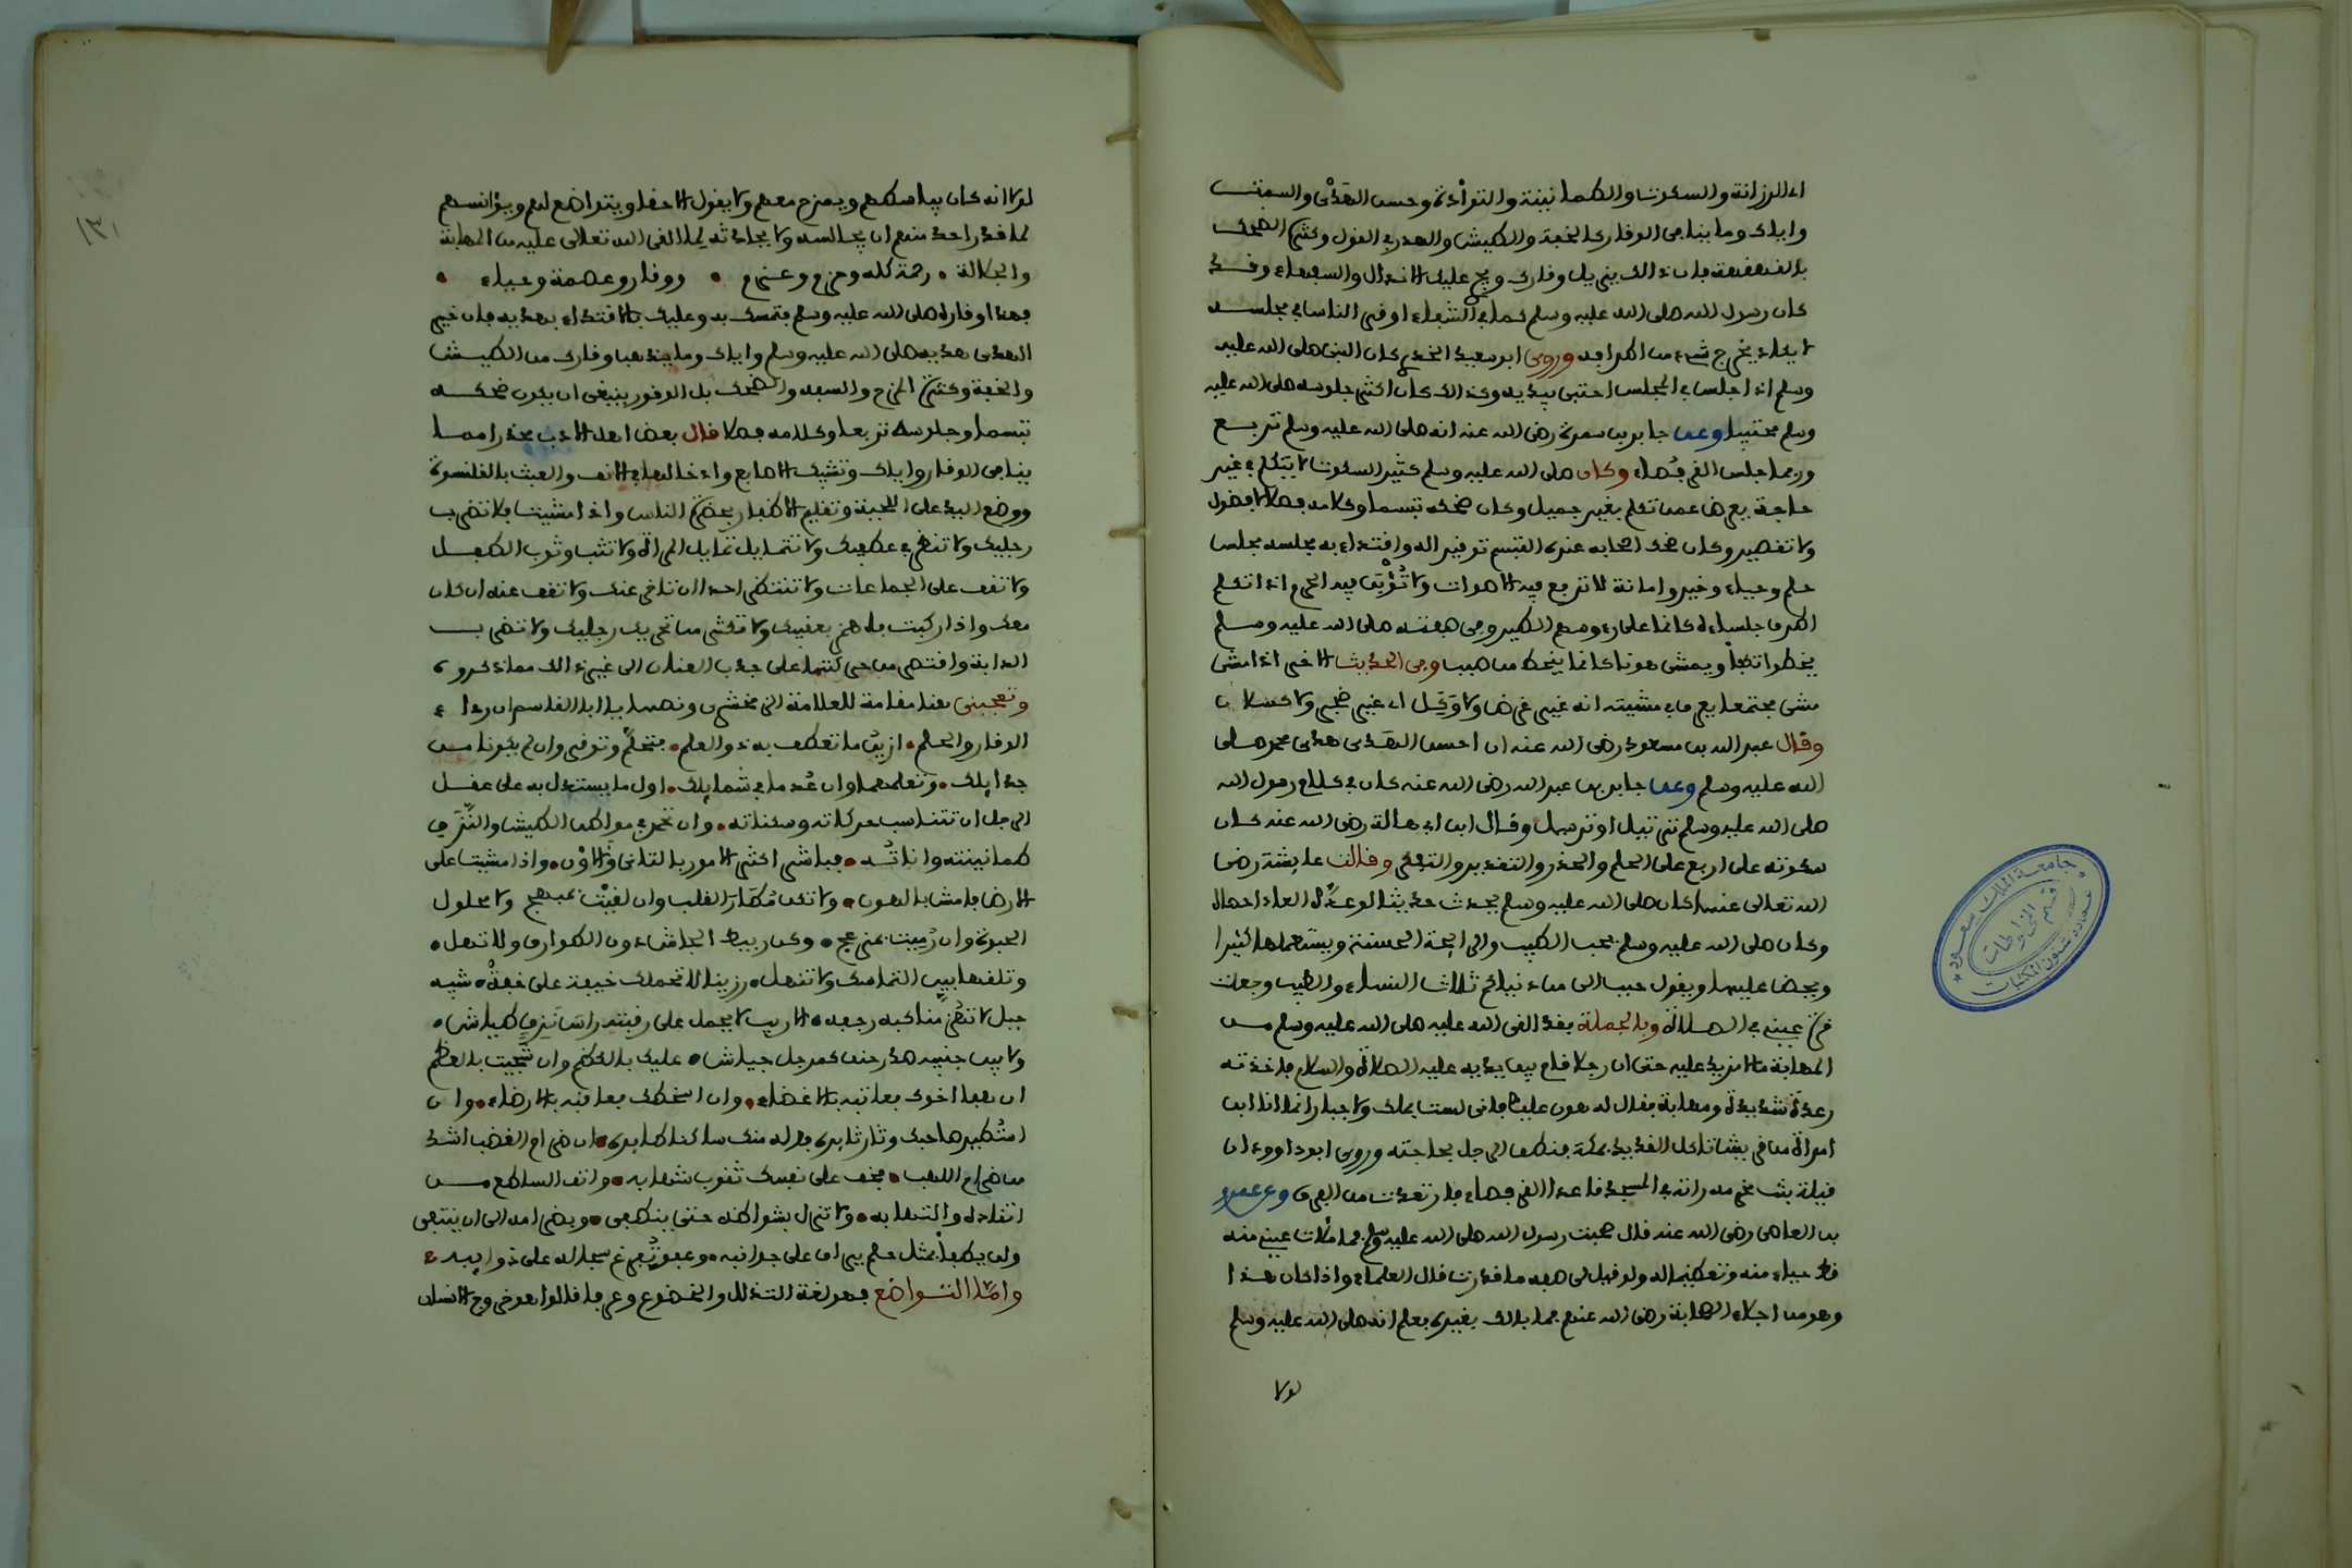 اي الرزانة والسكوت والطمأنينة والتؤدة وحسن الهدي والسمت
واياك وما ينافي الوقار كالخفة والطيش والهدر في القول وكثرة الضحك
بالقهقهة فان ذلك يزيل وقارك ويجرئ عليك الانذال والسفهاء وقد
كان رسول الله صلى الله عليه وسلم كما في الشفاء اوقر الناس في مجلسه
لا يكاد يخرج شيء من اطرافه وروى ابو سعيد الخدري كان النبي صلى الله عليه
وسلم اذا جلس في المجلس احتبى بيديه وكذلك كان اكثر جلوسه صلى الله عليه
وسلم محتبيا وعن جابر بن سمرة رضي الله عنه انه صلى الله عليه وسلم تربع
وربما جلس القرفصاء وكان صلى الله عليه وسلم كثير السكوت لا يتكلم في غير
حاجة يعرض عمن تكلم بغير جميل وكان ضحكه تبسما وكلامه فصلا لا فضول
ولا تقصير وكان ضحك اصحابه عنده التبسم توقيرا له واقتداء به مجلسه مجلس
حلم وحياء وخير وامانة لا ترفع فيه الاصوات ولا تؤبن فيه الحرم اذا تكلم
اطرق جلساءه كانما على رءوسهم الطير ومن صفته صلى الله عليه وسلم
يخطو اتكفأ ويمشي هونا كانما ينحط من صبب ومن الحديث الاخر اذا مشى
مشى مجتمعا يعرف في مشيته انه غير غرض ولا وكل اي غير ضجر ولا كسلان
وقال عبد الله بن مسعود رضي الله عنه ان احسن الهدي هدي محمد صلى
الله عليه وسلم وعن جابر بن عبد الله رضي الله عنه كان في كلام رسول الله
صلى الله عليه وسلم ترتيل او ترسيل وقال ابن ابي هالة رضي الله عنه كان
سكوته على اربع على الحلم والحذر والتقدير والتفكر وقالت عايشة رضي
الله تعالى عنها كان صلى الله عليه وسلم يحدث حديثا لو عده العاد احصاه
وكان صلى الله عليه وسلم يحب الطيب والرايحة الحسنة ويستعملها كثيرا
ويحض عليهما ويقول حبب الي من دنياكم ثلاث النساء والطيب وجعلت
قرة عيني في الصلاة وبالجملة فقد القى الله عليه صلى الله عليه وسلم من
المهابة ما لا مزيد عليه حتى ان رجلا قام بين يديه عليه الصلاة والسلام فاخذته
رعدة شديدة ومهابة فقال له هون عليك فاني لست بملك ولا جبار انما انا ابن
امراة من قريش تاكل القديد بمكة فنطق الرجل بحاجته وروى ابو داوود ان
قيلة بنت مخرمة راته في المسجد قاعدا القرفصاء فارتعدت من الفرق وعن عمرو
بن العاصي رضي الله عنه قال صحبت رسول الله صلى الله عليه وسلم فما ملأت عيني منه
قط حياء منه وتعظيما له ولو قيل لي صفه ما قدرت قال العلماء واذا كان هذا
وهو من اجلاء الصحابة رضي الله عنهم فما بالك بغيره فعلم انه صلى الله عليه وسلم
لولا
جامعة الملك سعود
قسم المخطوطات
عمادة شئون المكتبات
١٣١
لولا انه كان يباسطهم ويمزح معهم ولا يقول الا حقا ويتواضع لهم ويؤانسهم
لما قدر احد منهم ان يجالسه ولا يحادثه لما القى الله تعالى عليه من المهابة
والجلالة • رحمة كله وحزم وعزم • ووقار وعصمة وحياء •
فهذا وقاره صلى الله عليه وسلم فتمسك به وعليك بالاقتداء بهديه فان خير
الهدي هديه صلى الله عليه وسلم واياك وما يذهب وقارك من الطيش
والخفة وكثرة المزح والسفه والضحك بل الوقور ينبغي ان يكون ضحكه
تبسما وجلوسه تربعا وكلامه فصلا قال بعض اهل الادب محذرا مما
ينافي الوقار واياك وتشبيك الاصابع وادخالها في الانف والعبث بالقلنسوة
ووضع اليد على اللحية وتقليم الاظفار بحضرة الناس واذا مشيت فلا تضرب
رجليك ولا تنظر في عطفيك ولا تتمايل تمايل المراة ولا تثب وثوب الطفل
ولا تقف على الجماعات ولا تنتظر احدا ان تاخر عنك ولا تقف عنه ان كان
معك واذا ركبت فلا تهمز بعقبيك ولا تكثر من تحريك رجليك ولا تضرب
الدابة واقتصر من حركتها على جذب العنان الى غير ذلك مما ذكروه
وتعجبني هنا مقامة للعلامة الزمخشري ونصها يا ابا القاسم ان رداء
الوقار والحلم • ازين ما تعطف به ذو العلم • فتحلم وتوقر وان لم يكونا من
جدايلك • وتعلمهما وان عدما في شمايلك • اول ما يستدل به على عقل
الرجل ان تتناسب حركاته وسكناته • وان تحمد في مواطن الطيش والنزق
طمانينته واناته • فباشر اكثر الامور بالتاني والاون • واذا مشيت على
الارض فامش بالهون • ولا تكن مطار القلب وان لقيت بمبهج ولا محلول
الحبوة وان رميت بمزعج • وكن ربيط الجاش دون الطوارق ولا تهل •
وتلقها بيد التماسك ولا تنهل • رزينا لا تحملك خيفة على خفة • شبه
جبل لا تهز مناكبه رجفة • الاريب لا يحمل على رقبته راسا نزقا طياشا •
ولا بين جنبيه صدرا حنقا كمرجل جياشا • عليك بالكظم وان شجيت بالعظم
ان هفا اخوك فعاتبه بالاغضاء • وان اسخطك فعاقبه بالارضاء • وان
استطير صاحبك وثار ثايره فوله منك ساكنا طايره • ان ضرام الغضب اشد
من ضرام اللهب • فخف على نفسك ثقوب شهابه • واتق الساطع من
اتقاده والتهابه • ولا تزل بشواظه حتى ينطفي • ويضرامه الى ان ينتفي
ولن يطفأ بمثل حلم يراق على جوانبه • وعفو تفرغ سجاله على ذوايبه •
واما التواضع فهو لغة التذلل والخضوع وعرفا قالوا هو خروج الانسان